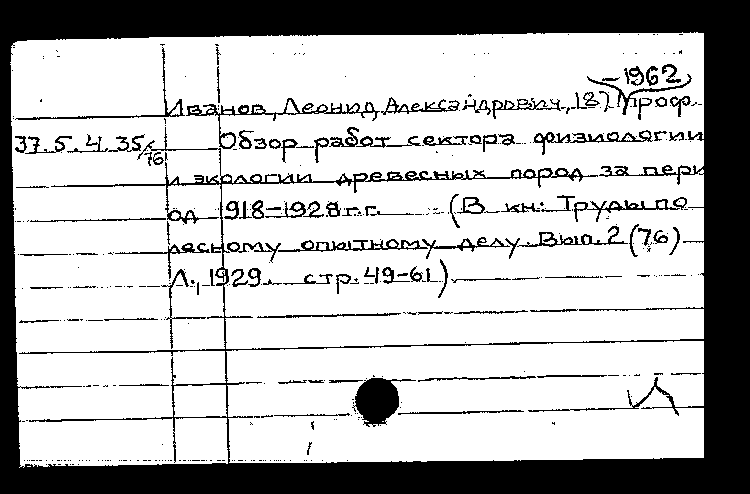 –1962
Иванов, Леонид Александрович, 1871 проф.
37.5.4.35/76 Обзор работ сектора физиологии
и экологии древесных пород за пери
од 1918-1928 г.г. (В кн: Труды по
лесному опытному делу. Вып. 2 (76)
Л., 1929. стр. 49-61).